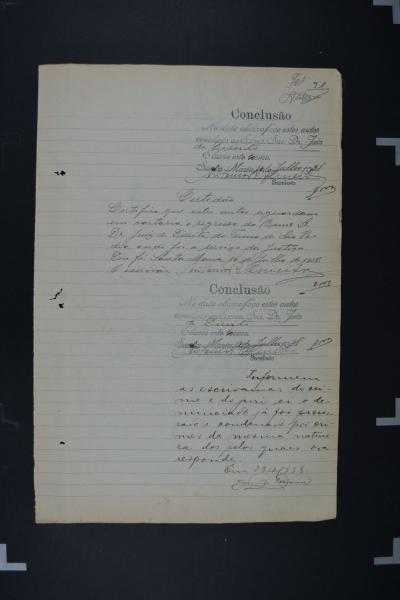 Fls 31
Conclusão
Na data abaixo faço estes autos
conclusos ao Exmo. Snr. Dr. Juiz
de Direito
E lavro este termo.
Santa Maria, 10 de Julho 1938
Escrivão
Certidão
Certifico que estes autos aguardam
em cartorio o regresso do Exmo. Sr.
Dr. Juiz de Direito do Termo de São Pe-
dro, onde foi a serviço da Justiça.
Dou fé. Santa Maria, 10 de Julho de 1938.
O escrivão
Conclusão
Na data abaixo faço estes autos
conclusos ao Exmo. Snr. Dr. Juiz
de Direito
E lavro este termo.
Santa Maria, de Julho 1938
Escrivão
Informem
os escrivães do cri-
me e do juri si o de-
nunciado já foi proces-
sado e condenado por cri-
mes da mesma nature-
za dos pelos quaes ora
responde.
Em 28/7/938